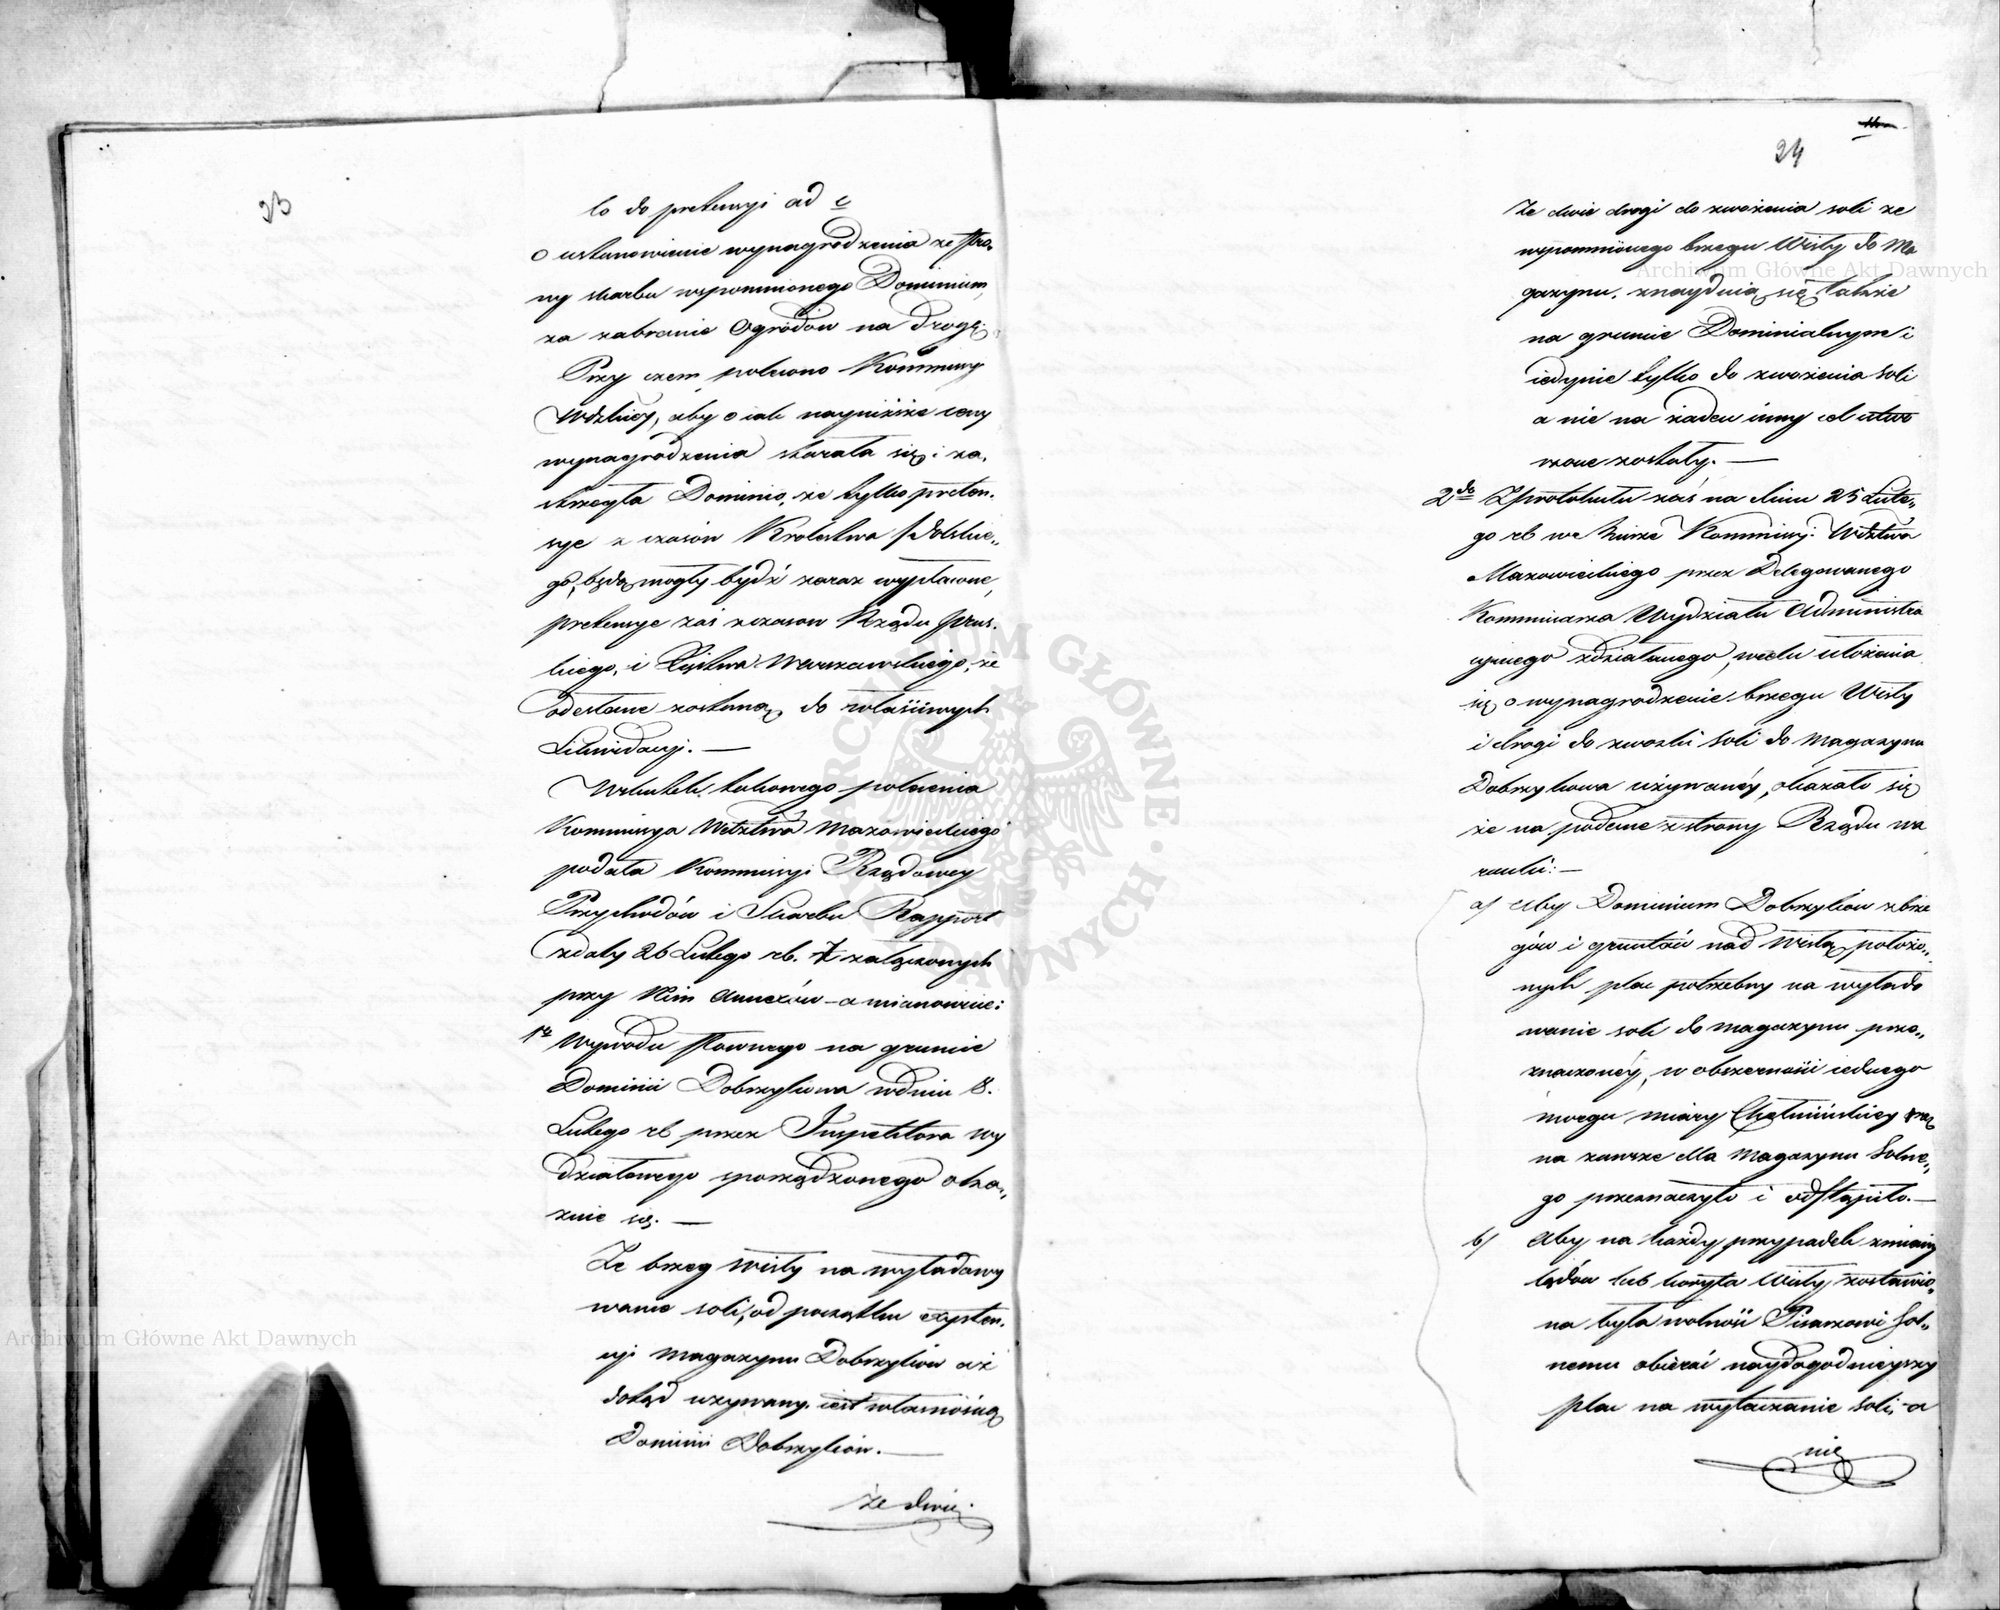 23
co do pretensyi ad c
o ustanowienie wynagrodzenia ze stro-
ny skarbu wspomnionego Dominium,
za zabranie Ogrodów na drogę.
Przy czem polecono Kommissyi
Wdzkiey, aby o iak nayniższe ceny
wynagrodzenia starała się i za-
strzegła Dominio, że tylko preten-
sye z czasów Królestwa Polskie-
go, będą mogły bydź zaraz wypłacone,
pretensye zaś z czasów Rządu Prus-
kiego, i Xięstwa Warszawskiego, że
odesłane zostaną do właściwych
Likwidacyi. —
Wskutek takowego polecenia
Kommissya Wdztwa Mazowieckiego
podała Kommissyi Rządowey
Przychodów i Skarbu Rapport
z daty 26 Lutego rb. z załączonych
przy Nim Annexów — a mianowicie:
1o Wywodu słownego na gruncie
Dominii Dobrzykowa w dniu 8.
Lutego rb przez Inspektora wy
działowego sporządzonego oka-
zuie się. —
Że brzeg Wisły na wyładowy
wanie soli, od początku exysten-
cyi Magazynu Dobrzyków aż
dotąd używany, iest własnością
Dominii Dobrzyków. —
że dwie
24
Że dwie drogi do zwożenia soli ze
wspomnionego brzegu Wisły do Ma
gazynu, znayduią się także
na gruncie Dominialnym i
iedynie tylko do zwożenia soli
a nie na żaden inny cel utwo
rzone zostały. —
2do Z protokułu zaś na dniu 25 Lute-
go rb w Biurze Kommissyi Wdztwa
Mazowieckiego przez Delegowanego
Kommissarza Wydziału Administra
cyinego zdziałanego, wcelu ułożenia
się o wynagrodzenie brzegu Wisły
i drogi do zwozki soli do Magazynu
Dobrzykowa używanéy, okazało się
że na podane ze strony Rządu wa
runki: —
a/ Aby Dominium Dobrzyków z brze
gów i gruntów nad Wisłą położo-
nych plac potrzebny na wyłado
wanie soli do magazynu prze-
znaczonéy, w obszerności iednego
morgu miary Chełmińskiey raz
na zawsze dla Magazynu Solne-
go przeznaczyło i odstąpiło. —
b/ Aby na każdy przypadek zmiany
lądów lub koryta Wisły zostawio-
na była wolność Pisarzowi Sol-
nemu obierać naydogodnieyszy
plac na wytaczanie soli, a
nie
Archiwum Główne Akt Dawnych
Archiwum Główne Akt Dawnych
ARCHIWUM GŁÓWNE AKT DAWNYCH